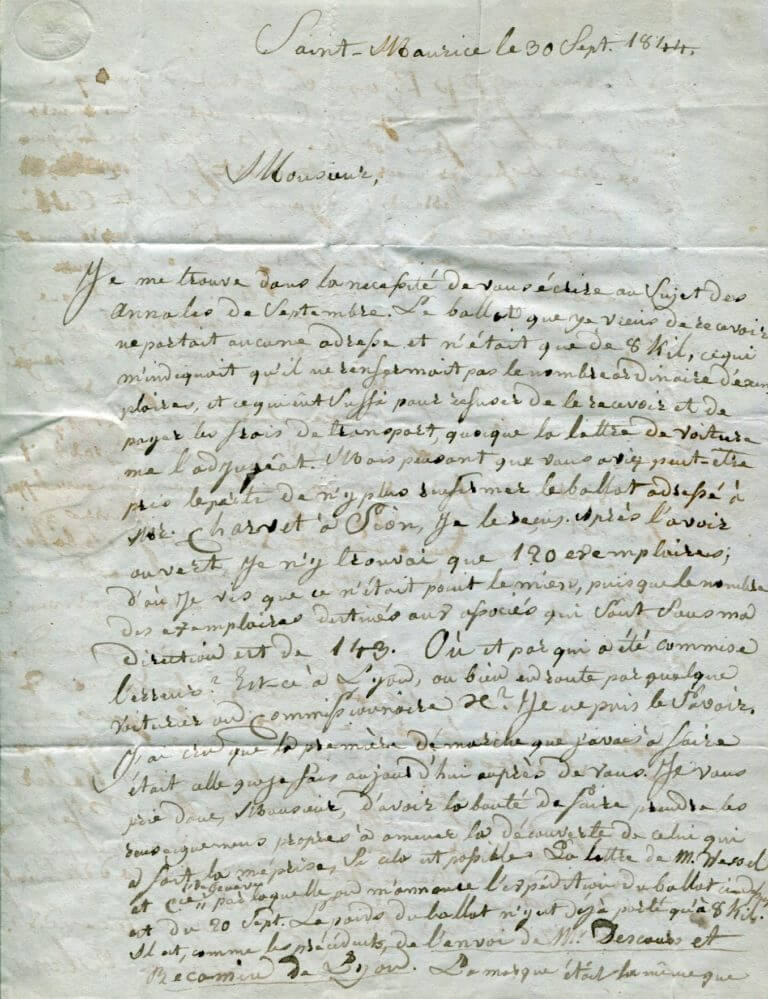 Saint-Maurice le 30 Sept. 1844.
Monsieur,
Je me trouve dans la necessité de vous écrire au Sujet des
Annales de Septembre. Le ballot que je viens de recevoir
ne portait aucune adresse et n'était que de 8 Kil, ce qui
m'indiquoit qu'il ne renfermoit pas le nombre ordinaire d'exem
plaires, et ce qui eût Suffi pour refuser de le recevoir et de
payer les frais de transport, quoique la lettre de voiture
me l'adjugeât. Mais pensant que vous aviez peut-être
pris le parti de n'y plus renfermer le ballot adressé à
Mr. Charvet à Sion, Je le reçus. Après l'avoir
ouvert Je n'y trouvai que 120 exemplaires;
d'où Je vis que ce n'était point le mien, puisque le nombre
des exemplaires destinés aux associés qui Sont Sous ma
direction est de 143. Où et par qui a été commise
l'erreur? Est-ce à Lyon, ou bien en route par quelque
voiturier ou Commissionnaire &c.? Je ne puis le Savoir.
J'ai cru que la première démarche que j'avais à faire
était celle que je fais aujourd'hui auprès de vous. Je vous
prie donc, Monsieur, d'avoir la bonté de faire prendre les
renseignemens propres à amener la découverte de celui qui
a fait la méprise, Si cela est possible. La lettre de M. Wessel
et Cie de Genève par laquelle on m'annonce l'expédition du ballot
est du 20 Sept. Le poids du ballot n'y est déjà porté qu'à 8 Kil.
Il est, comme les précédents, de l'envoi de Mrs. Descours et
Recamier de Lyon. La marque était la même que